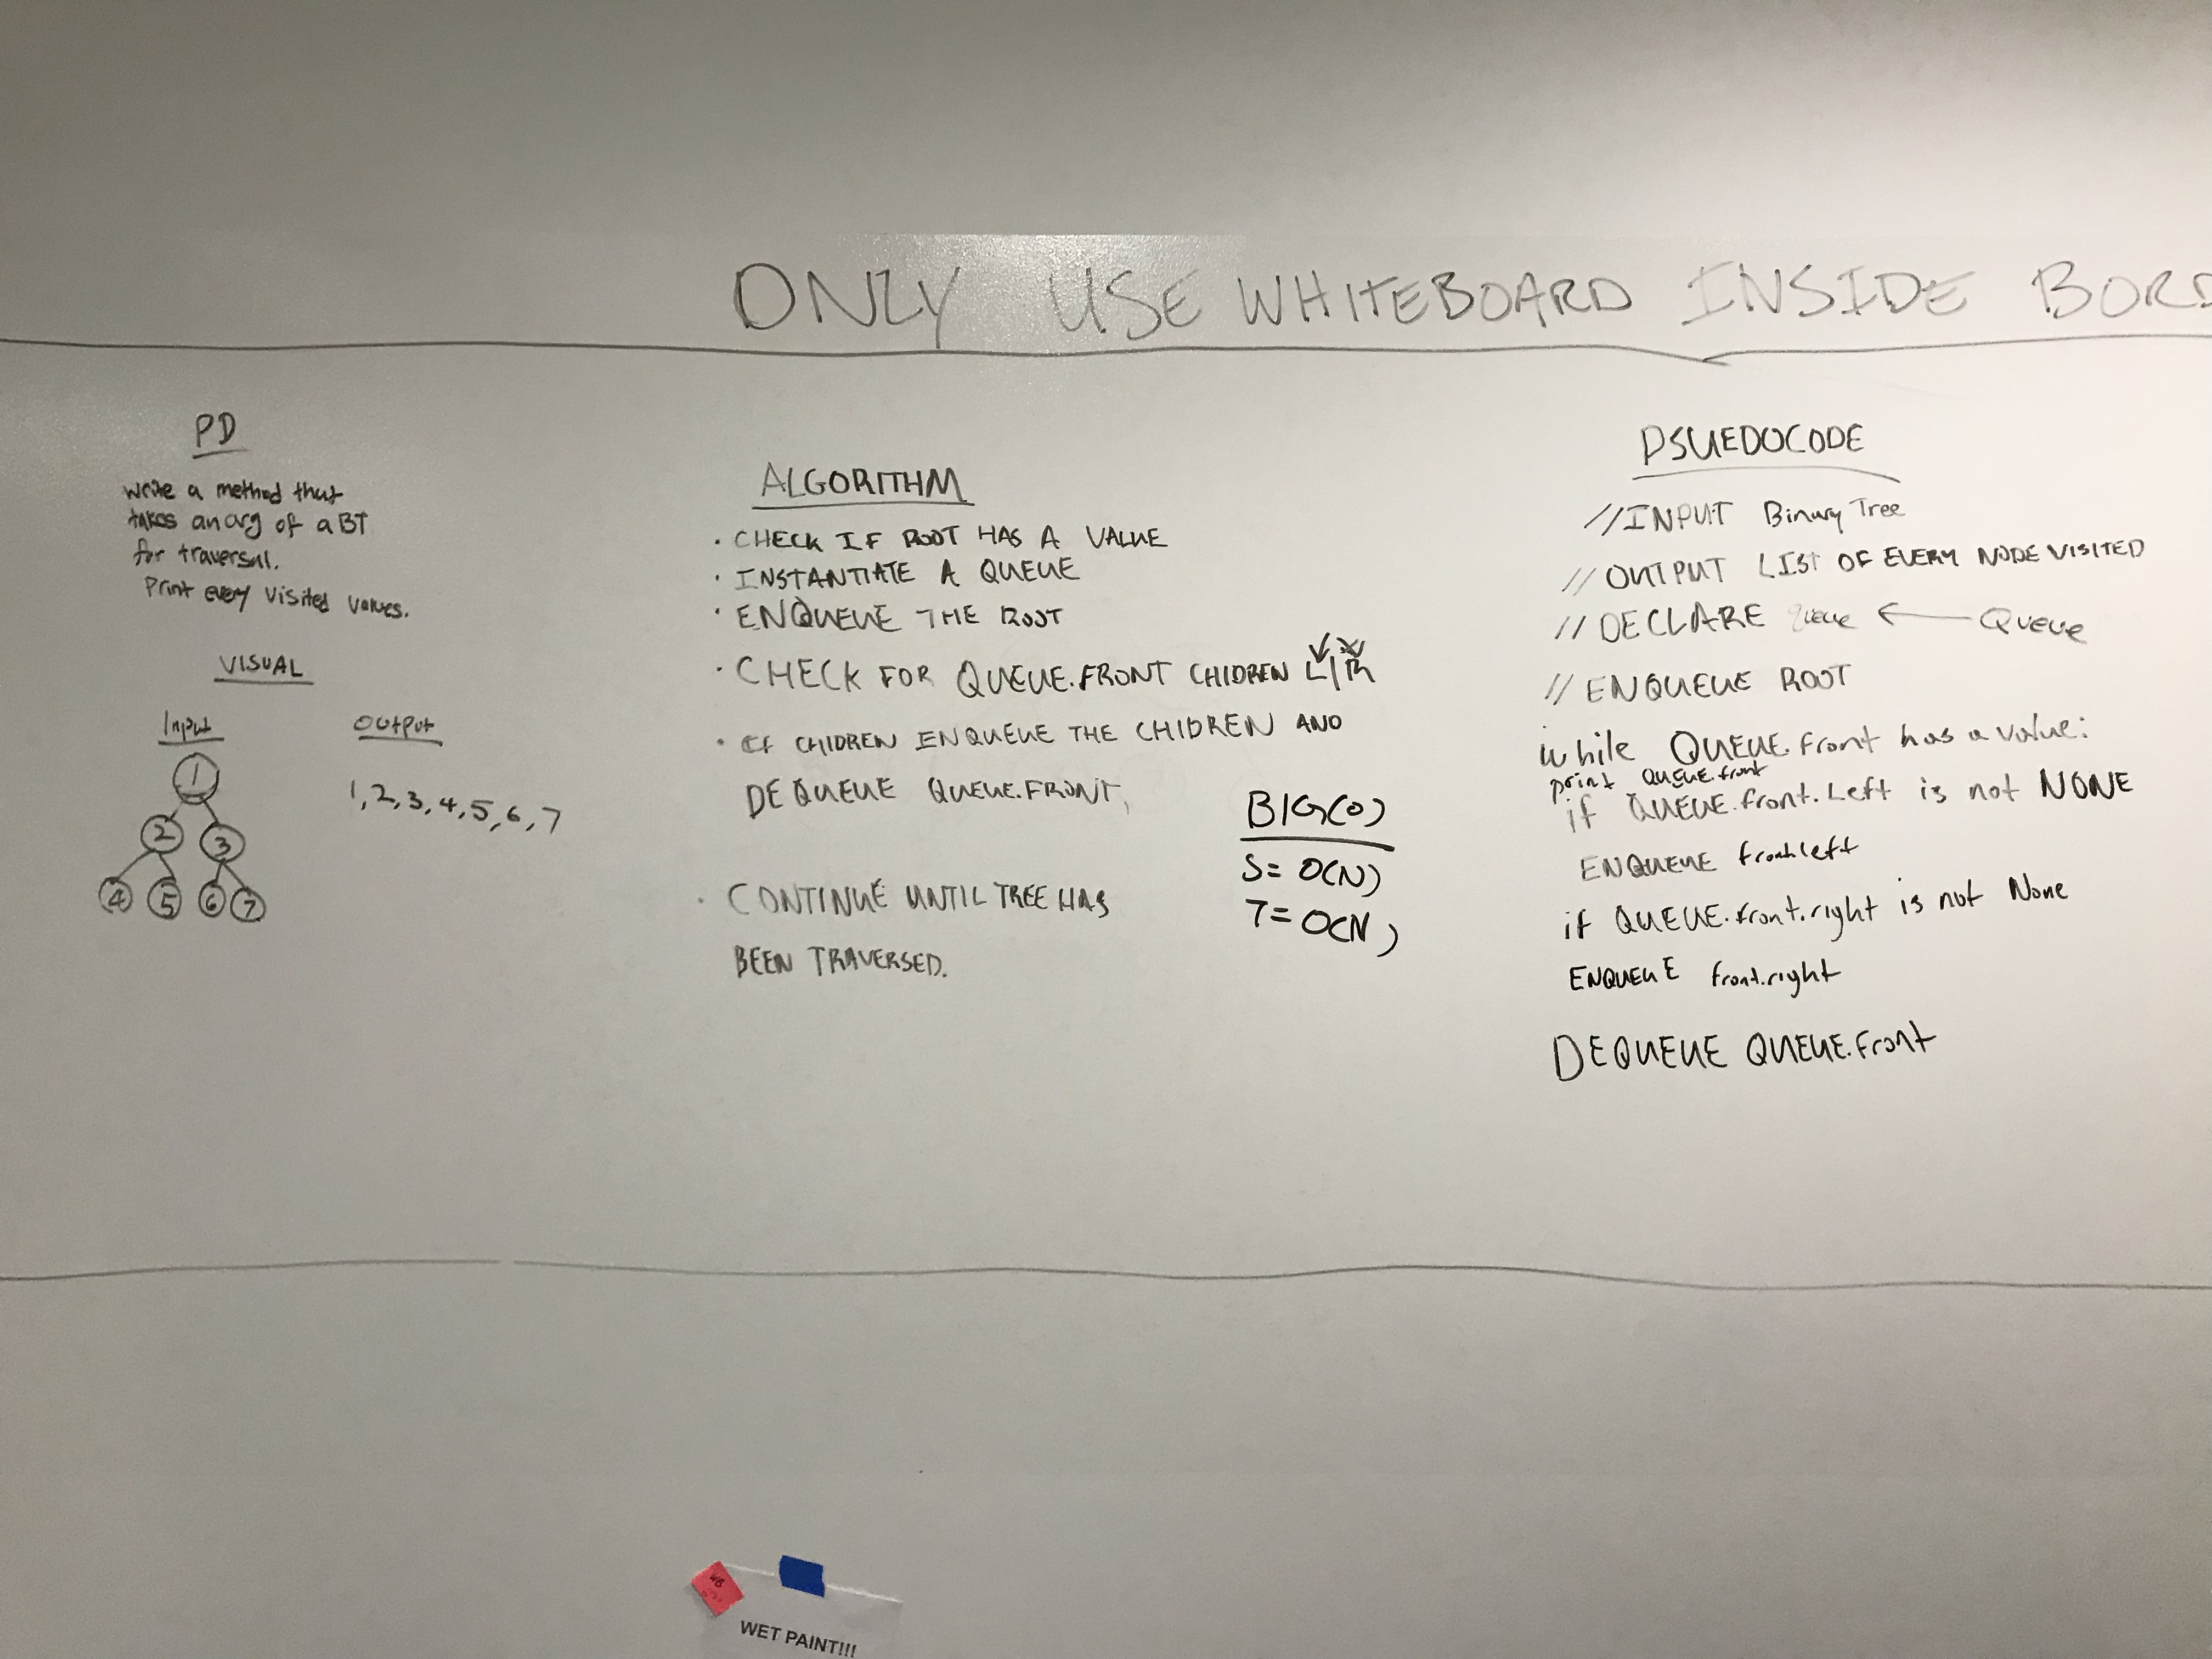 ONLY USE WHITEBOARD INSIDE BORD
PD
write a method that
takes an arg of a BT
for traversal.
Print every visited values.
VISUAL
Input
Output
1
2 3
4 5 6 7
1,2,3,4,5,6,7
ALGORITHM
· CHECK IF ROOT HAS A VALUE
· INSTANTIATE A QUEUE
· ENQUEUE THE ROOT
· CHECK FOR QUEUE.FRONT CHIDREN L/R
· If CHIDREN ENQUEUE THE CHIDREN AND
DEQUEUE QUEUE.FRONT,
· CONTINUE UNTIL TREE HAS
BEEN TRAVERSED.
BIG(O)
S= O(N)
T= O(N)
PSUEDOCODE
//INPUT Binary Tree
// OUTPUT LIST OF EVERY NODE VISITED
// DECLARE Queue ← Queue
// ENQUEUE ROOT
while QUEUE.front has a value:
print QUEUE.front
if QUEUE.front.Left is not NONE
ENQUEUE front.left
if QUEUE.front.right is not None
ENQUEUE front.right
DEQUEUE QUEUE.front
WB
WET PAINT!!!